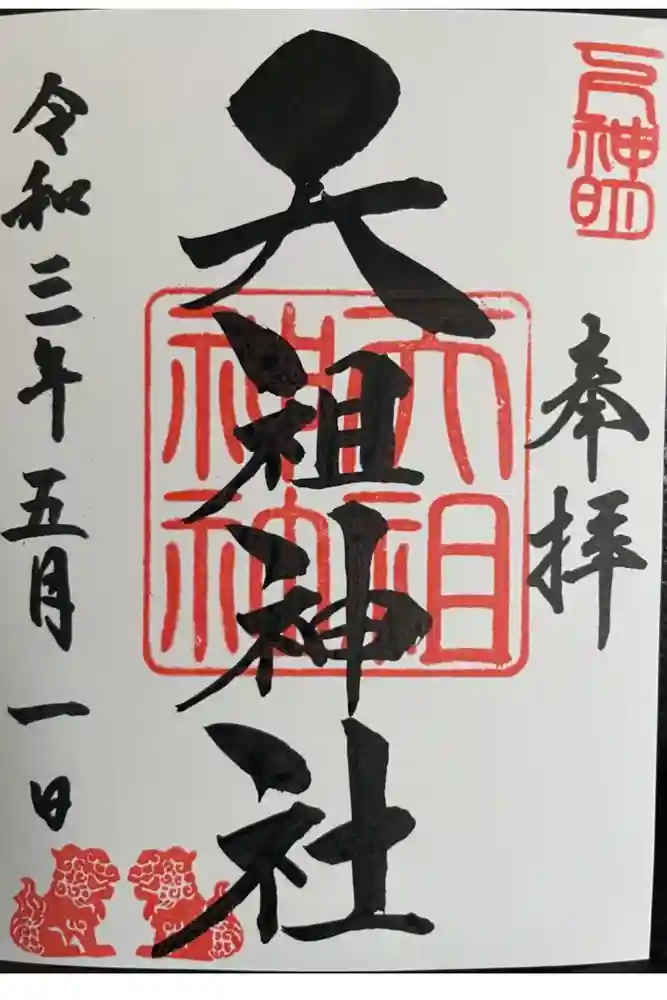 奉拝
天祖神社
令和三年五月一日
天祖
神
神明